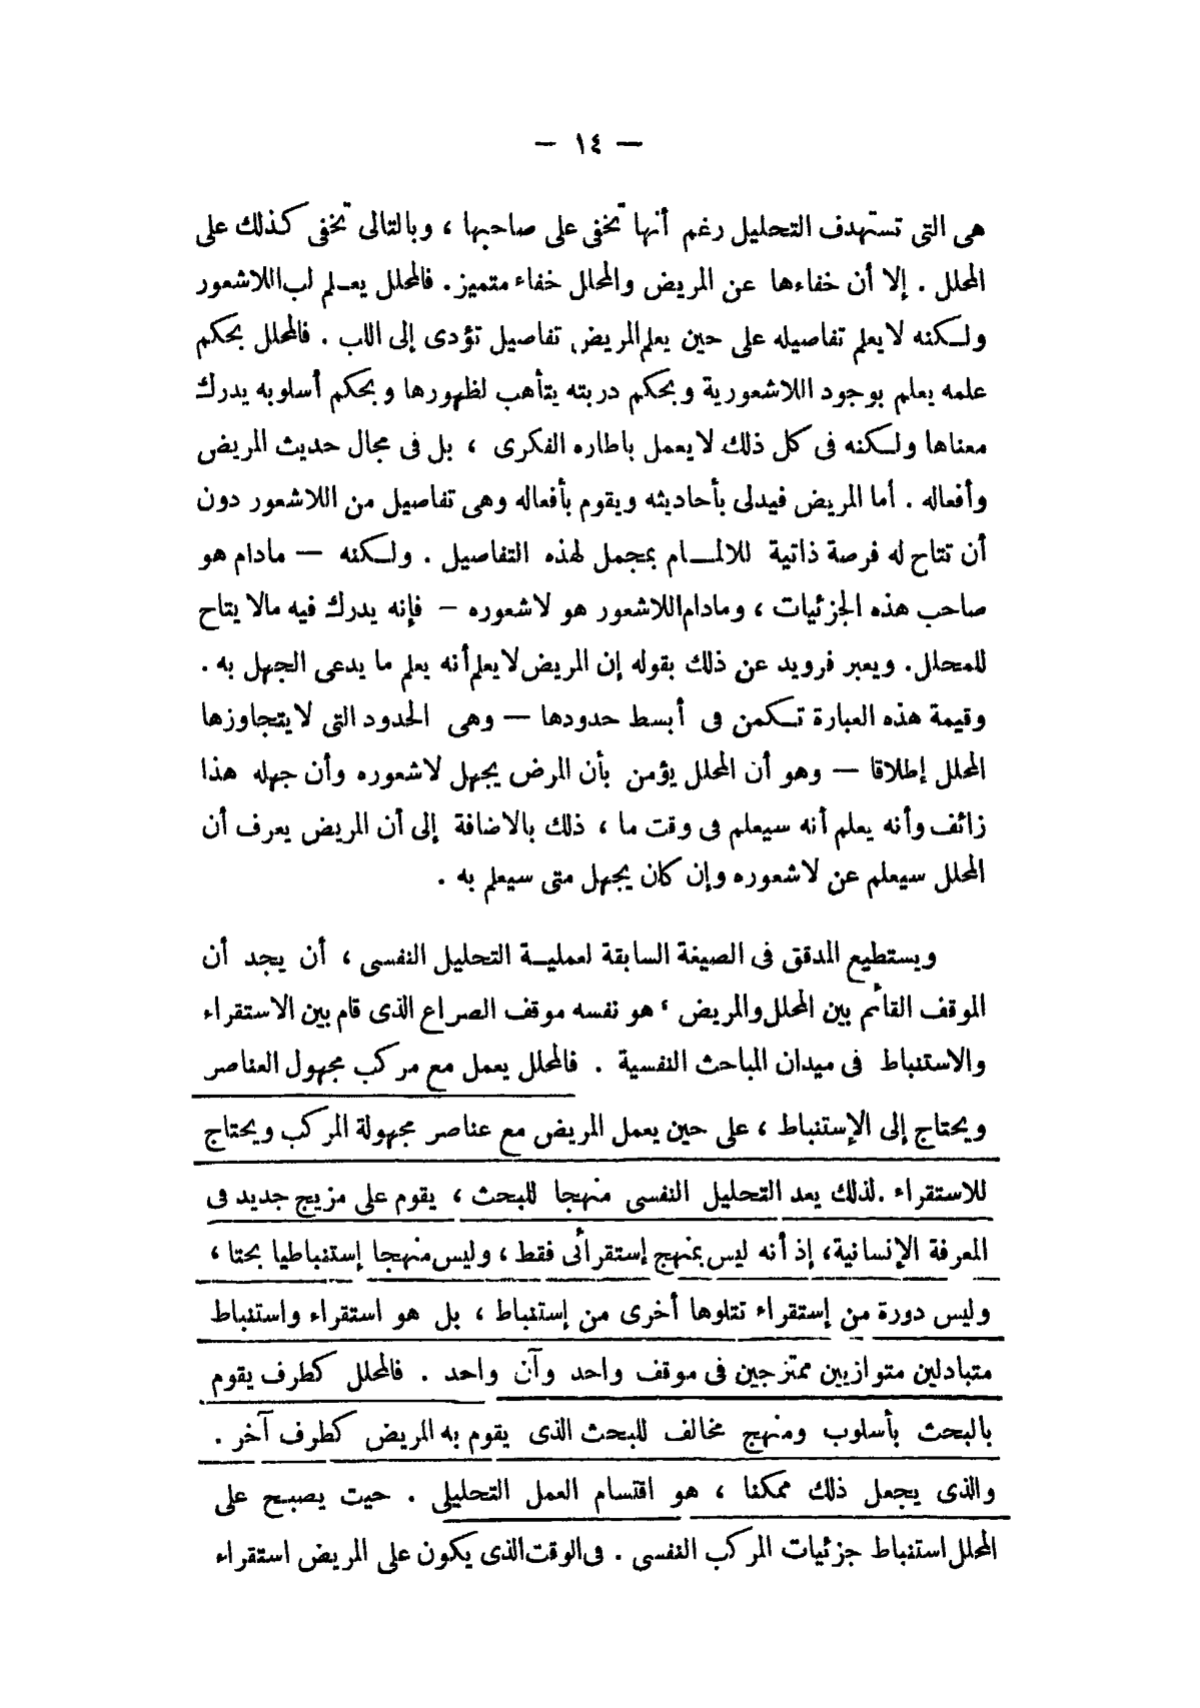 — ١٤ —
هى التى تستهدف التحليل رغم أنها تخفى على صاحبها ، وبالتالى تخفى كذلك على
المحلل . إلا أن خفاءها عن المريض والمحلل خفاء متميز . فالمحلل يعـلم لب اللاشعور
ولـكنه لا يعلم تفاصيله على حين يعلم المريض تفاصيل تؤدى إلى اللب . فالمحلل بحكم
علمه يعلم بوجود اللاشعورية وبحكم دربته يتأهب لظهورها وبحكم أسلوبه يدرك
معناها ولـكنه فى كل ذلك لا يعمل باطاره الفكرى ، بل فى مجال حديث المريض
وأفعاله . أما المريض فيدلى بأحاديثه ويقوم بأفعاله وهى تفاصيل من اللاشعور دون
أن تتاح له فرصة ذاتية للالمـــام بمجمل لهذه التفاصيل . ولـكنه — مادام هو
صاحب هذه الجزئيات ، ومادام اللاشعور هو لاشعوره — فإنه يدرك فيه مالا يتاح
للمحلل . ويعبر فرويد عن ذلك بقوله إن المريض لا يعلم أنه يعلم ما يدعى الجهل به .
وقيمة هذه العبارة تـكمن فى أبسط حدودها — وهى الحدود التى لا يتجاوزها
المحلل إطلاقا — وهو أن المحلل يؤمن بأن المرض يجهل لاشعوره وأن جهله هذا
زائف وأنه يعلم أنه سيعلم فى وقت ما ، ذلك بالاضافة إلى أن المريض يعرف أن
المحلل سيعلم عن لاشعوره وإن كان يجهل متى سيعلم به .
ويستطيع المدقق فى الصيغة السابقة لعمليـة التحليل النفسى ، أن يجد أن
الموقف القائم بين المحلل والمريض ، هو نفسه موقف الصراع الذى قام بين الاستقراء
والاستنباط فى ميدان المباحث النفسية . فالمحلل يعمل مع مركب مجهول العناصر
ويحتاج إلى الإستنباط ، على حين يعمل المريض مع عناصر مجهولة المركب ويحتاج
للاستقراء . لذلك يعد التحليل النفسى منهجا للبحث ، يقوم على مزيج جديد فى
المعرفة الإنسانية، إذ أنه ليس بمنهج إستقرائى فقط ، وليس منهجا إستنباطيا بحتا ،
وليس دورة من إستقراء تتلوها أخرى من إستنباط ، بل هو استقراء واستنباط
متبادلين متوازيين ممتزجين فى موقف واحد وآن واحد . فالمحلل كطرف يقوم
بالبحث بأسلوب ومنهج مخالف للبحث الذى يقوم به المريض كطرف آخر .
والذى يجعل ذلك ممكنا ، هو اقتسام العمل التحليلى . حيت يصبـح على
المحلل استنباط جزئيات المركب النفسى . فى الوقت الذى يكون على المريض استقراء